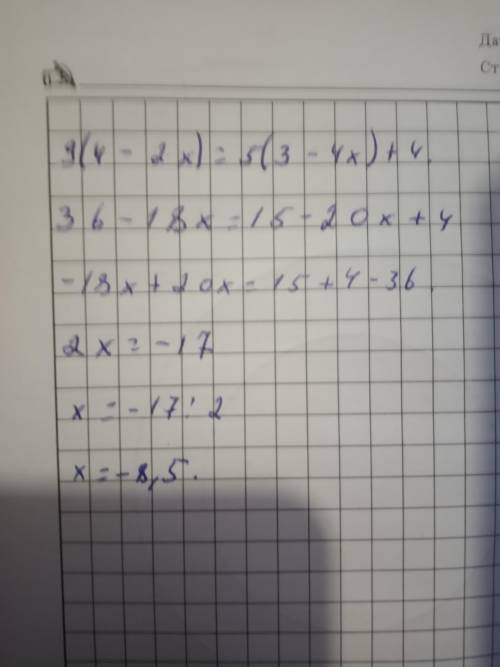 Да
Ст
9(4 - 2x) = 5(3 - 4x) + 4.
36 - 18x = 15 - 20x + 4
-18x + 20x = 15 + 4 - 36.
2x = -17
x = -17 : 2
x = -8,5.